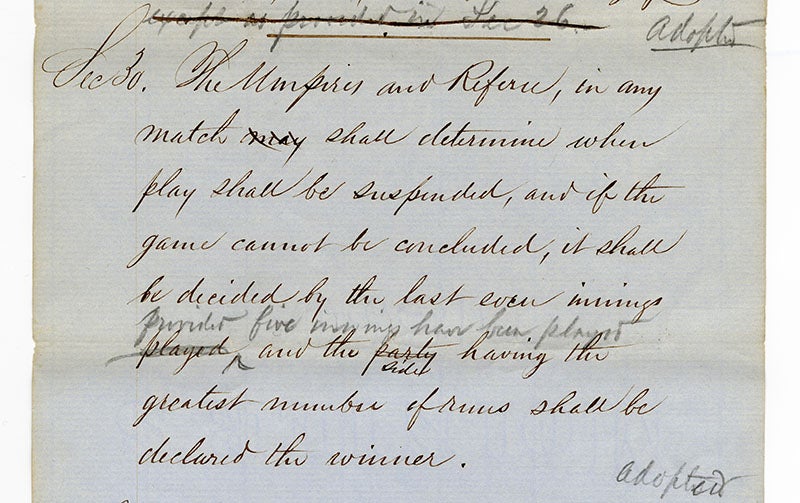 except as provided in Sec 26.
Adopted
Sec 30. The Umpires and Referee, in any
match may shall determine when
play shall be suspended, and if the
game cannot be concluded, it shall
be decided by the last even innings
provided five innings have been played
played ^ and the party having the
side
greatest number of runs shall be
declared the winner.
adopted